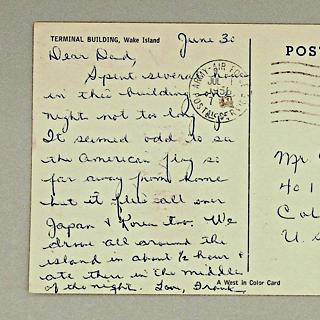 TERMINAL BUILDING, Wake Island
June 30
POST
Dear Dad,
Spent several hours
in this building
night not too long
It seemed odd to see
the American flag so
far away from home
but it flies all over
Japan & Korea too. We
drove all around the
island in about ½ hour &
ate there in the middle
of the night. Love, Frank
ARMY-AIR
JUL
Mr
401
Col
U. S
A West in Color Card